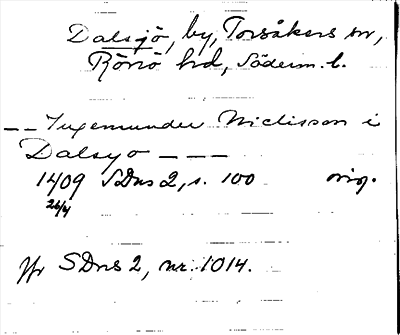 Dalsjö, by, Torsåkers sn,
Rönö hd, Söderm. l.
-- Ingemunder Niclisson i
Dalsyo ---
1409 SDns 2, s. 100 orig.
26/4
Jfr SDns 2, nr. 1014.